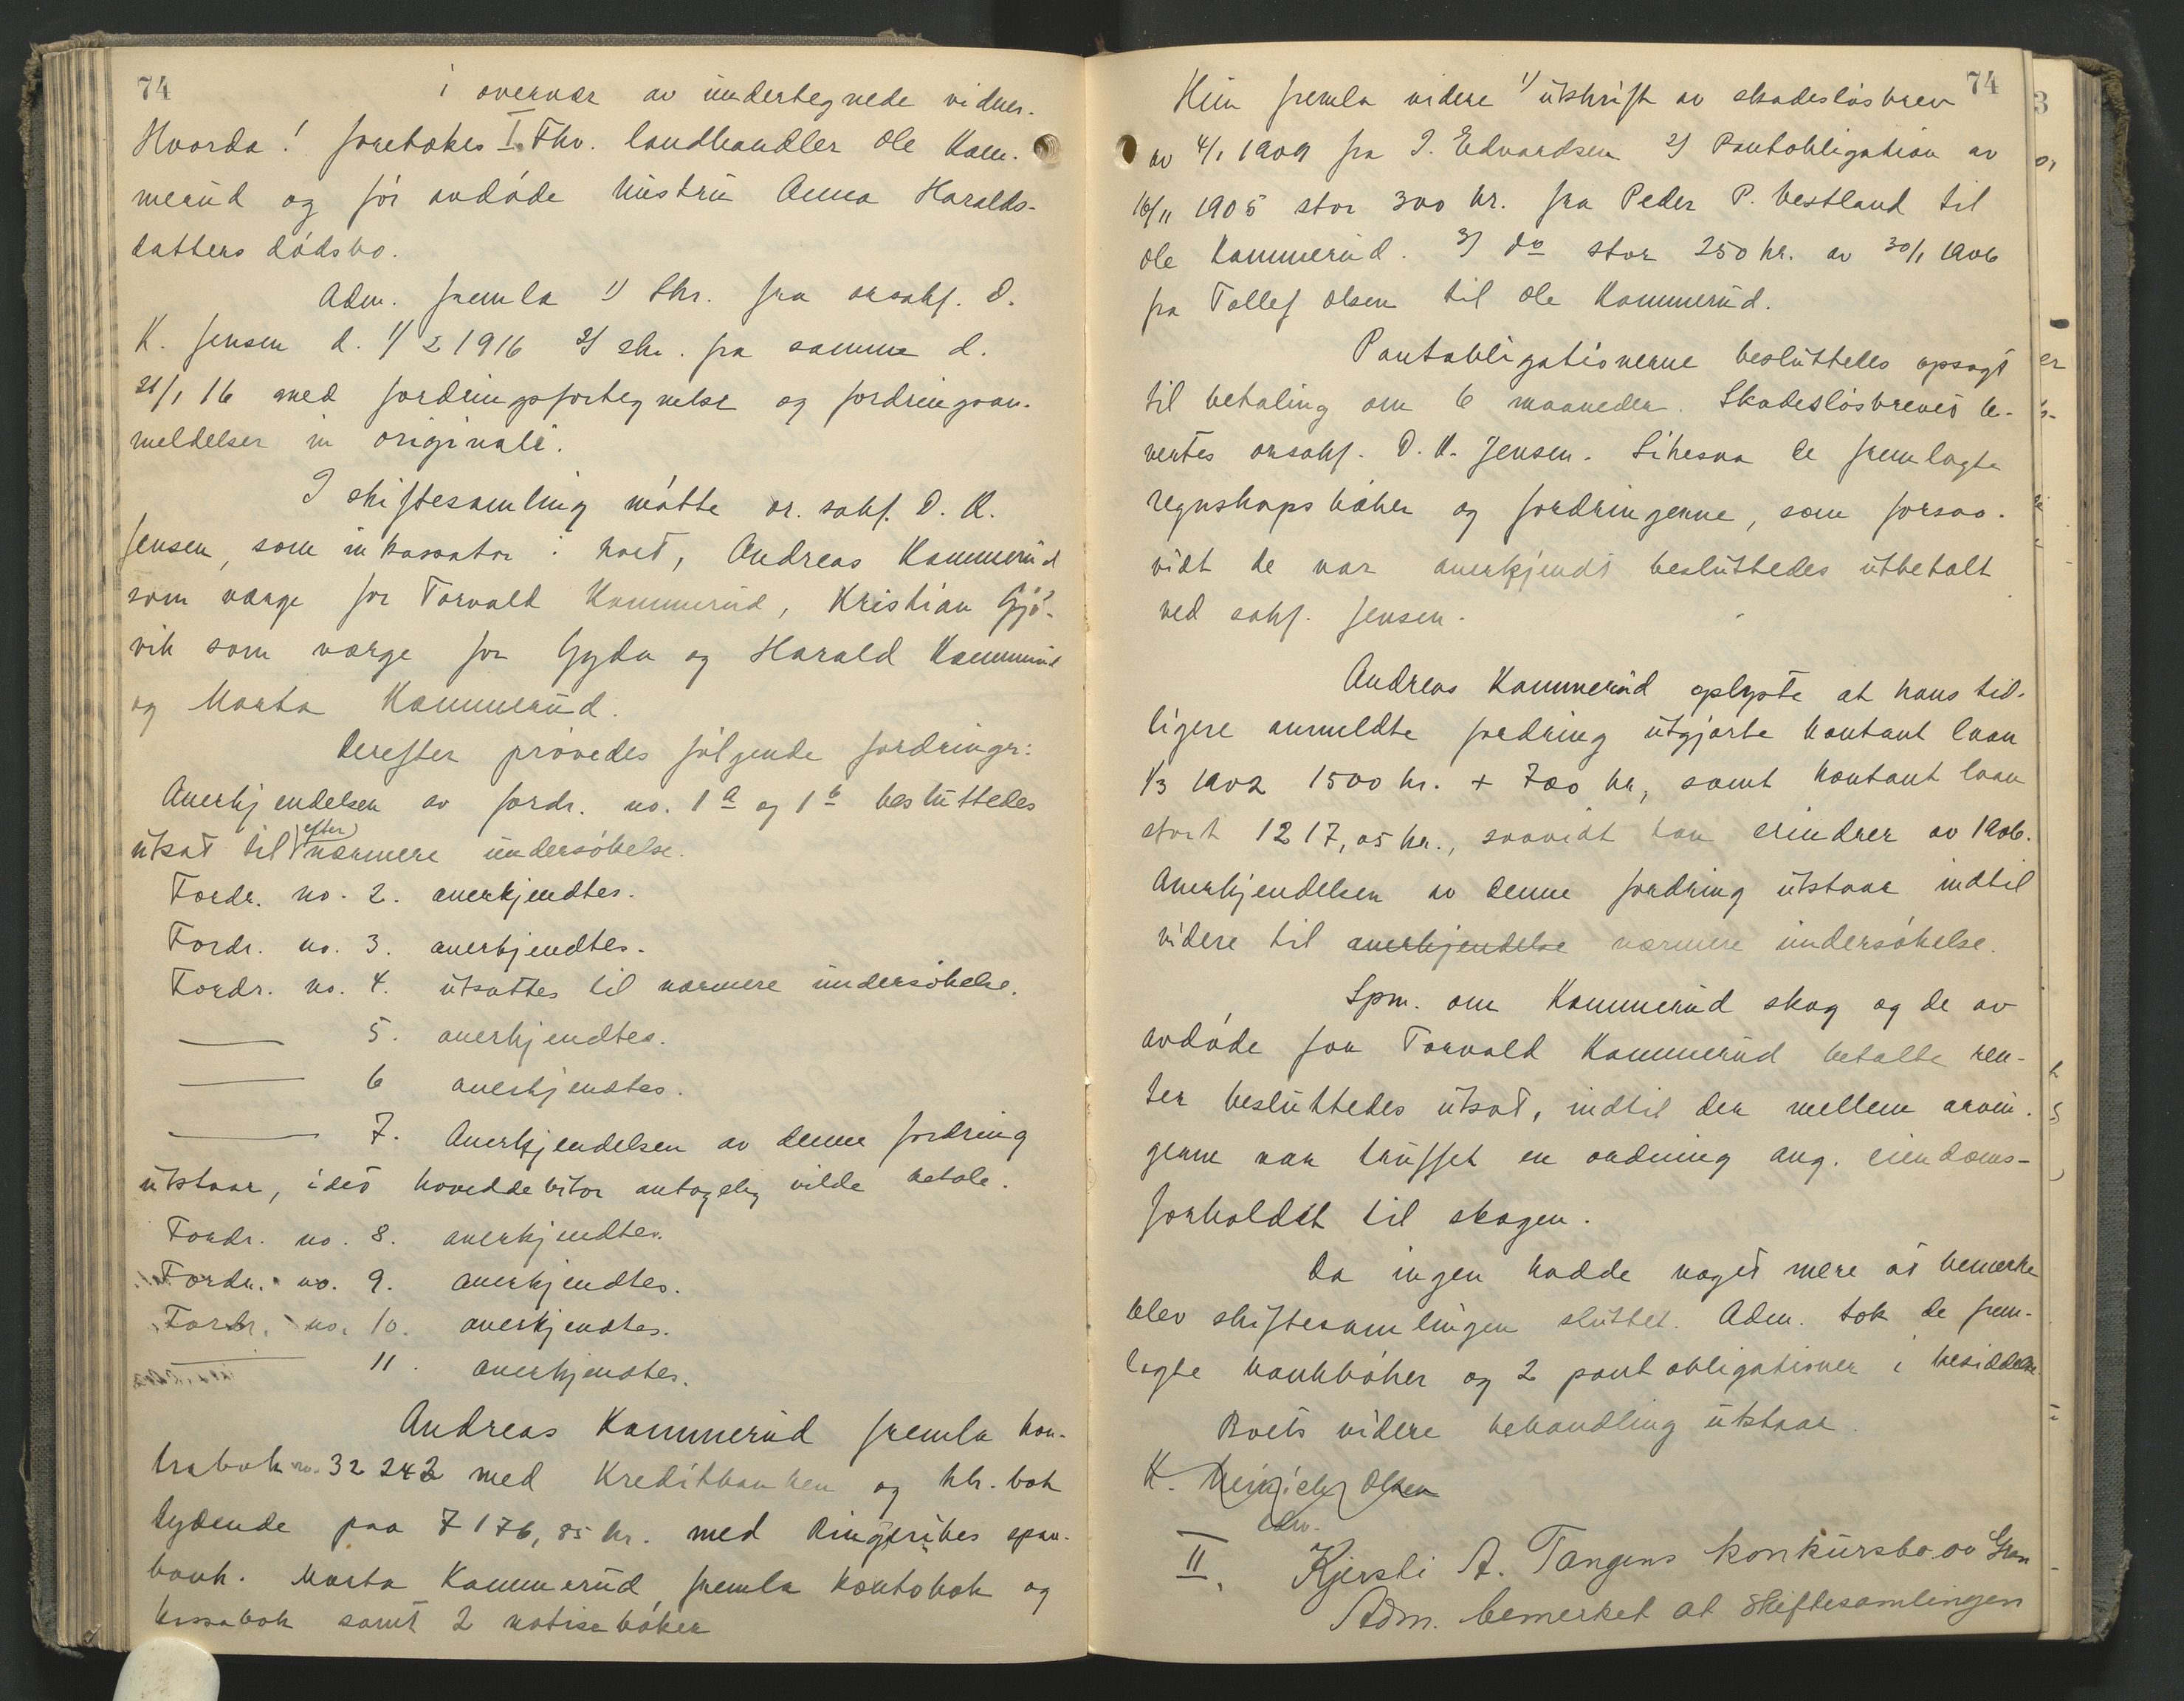 74
i overvær av undertegnede vidner.
Hvorda! foretokes I. Fhv. landhandler Ole Kam-
merud og før avdøde hustru Anna Haralds-
datters dødsbo.
Adm. fremla 1) Skr. fra orsakf. O.
K. Jensen d. 1/2 1916 2) skr. fra samme d.
21/1 16 med fordringsfortegnelse og fordringsan-
meldelser in originali.
I skiftesamling møtte or. sakf. O. K.
Jensen, som inkassator i boet, Andreas Kammerud
som værge for Torvald Kammerud, Kristian Gjø-
vik som værge for Gyda og Harald Kammerud
og Marta Kammerud.
Derefter prøvedes følgende fordringer:
Anerkjendelsen av fordr. no. 1 a og 1 b besluttedes
utsat til efter nærmere undersøkelse.
Fordr. no. 2. anerkjendtes.
Fordr. no. 3. anerkjendtes.
Fordr. no. 4. utsattes til nærmere undersøkelse.
— 5. anerkjendtes.
— 6 anerkjendtes.
— 7. Anerkjendelsen av denne fordring
utstaar, idet hoveddebitor antagelig vilde betale.
Fordr. no. 8. anerkjendtes.
Fordr. no. 9. anerkjendtes.
Fordr. no. 10. anerkjendtes.
— 11. anerkjendtes.
Andreas Kammerud fremla kon-
trabok no. 32242 med Kreditbanken og kk. bok
lydende paa 7176,85 kr. med Ringerikes spare-
bank. Marta Kammerud fremla kontobok og
kassabok samt 2 notisebøker
74
Hun fremla videre 1) utskrift av skadesløsbrev
av 4/1 1909 fra I. Edvardsen 2) Pantobligation av
16/11 1905 stor 300 kr. fra Peder P. Vestland til
Ole Kammerud. 3) do stor 250 kr. av 30/1 1906
fra Tollef Olsen til Ole Kammerud.
Pantobligationerne besluttedes opsagt
til betaling om 6 maaneder. Skadesløsbrevet le-
vertes orsakf. O. K. Jensen. Likesaa de fremlagte
regnskapsbøker og fordringerne, som forsaa-
vidt de var anerkjendt besluttedes utbetalt
ved sakf. Jensen.
Andreas Kammerud oplyste at hans tid-
ligere anmeldte fordring utgjorte kontant laan
1/3 1902 1500 kr. + 700 kr, samt kontant laan
stort 1217,05 kr., saavidt han erindrer av 1906.
Anerkjendelsen av denne fordring utstaar indtil
videre til anerkjendelse nærmere undersøkelse.
Spm. om Kammerud skog og de av
avdøde for Torvald Kammerud betalte ren-
ter besluttedes utsat, indtil der mellem arvin-
gerne var truffet en ordning ang. eiendoms-
forholdet til skogen.
Da ingen hadde noget mere at bemerke
blev skiftesamlingen sluttet. Adm. tok de frem-
lagte bankbøker og 2 pantobligationer i besiddelse
Boets videre behandling utstaar.
K. Heinrich Olsen
edsv.
II. Kjersti A. Tangens konkursbo av Gran
Adm. bemerket at skiftesamlingen